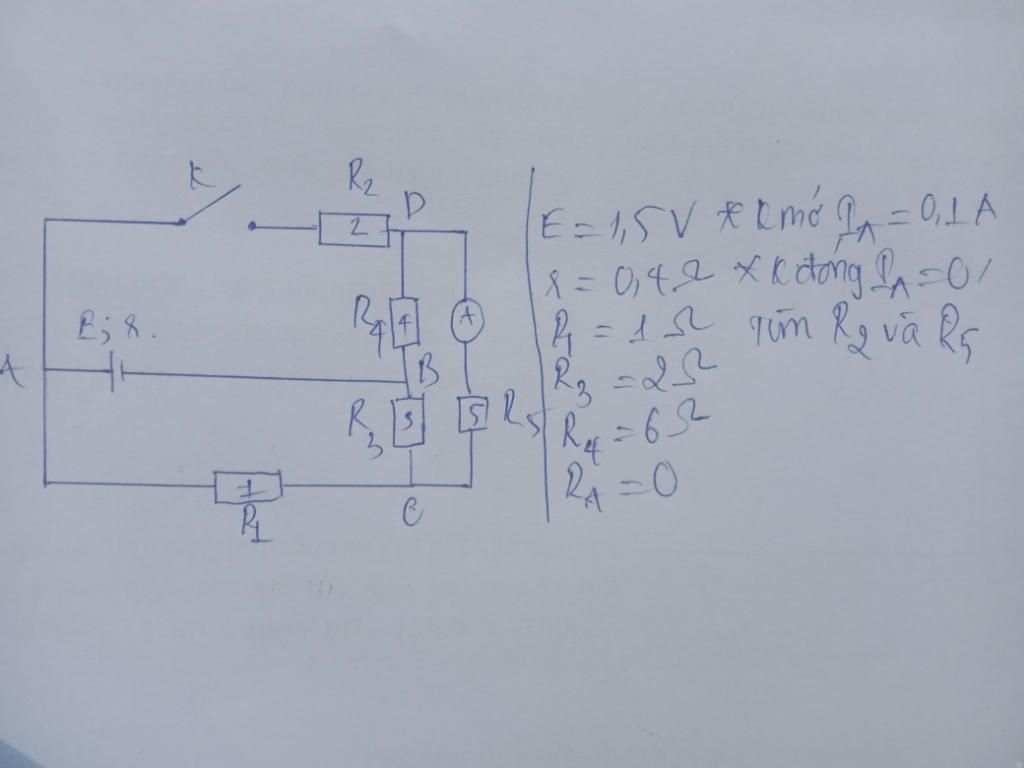 K
R2
2
D
R4
4
A
E; r.
A
B
R3
3
5
R5
1
R1
C
E = 1,5 V * K mở IA = 0,1 A
r = 0,4 Ω * K đóng IA = 0
R1 = 1 Ω Tìm R2 và R5
R3 = 2 Ω
R4 = 6 Ω
RA = 0